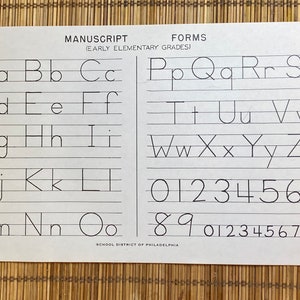 MANUSCRIPT FORMS
(EARLY ELEMENTARY GRADES)
a Bb Cc
d Ee Ff
g Hh Ii
j Kk Ll
n Nn Oo
Pp Qq Rr S
Tt Uu V
Ww Xx Yy Z
0123456
89 01234567
SCHOOL DISTRICT OF PHILADELPHIA